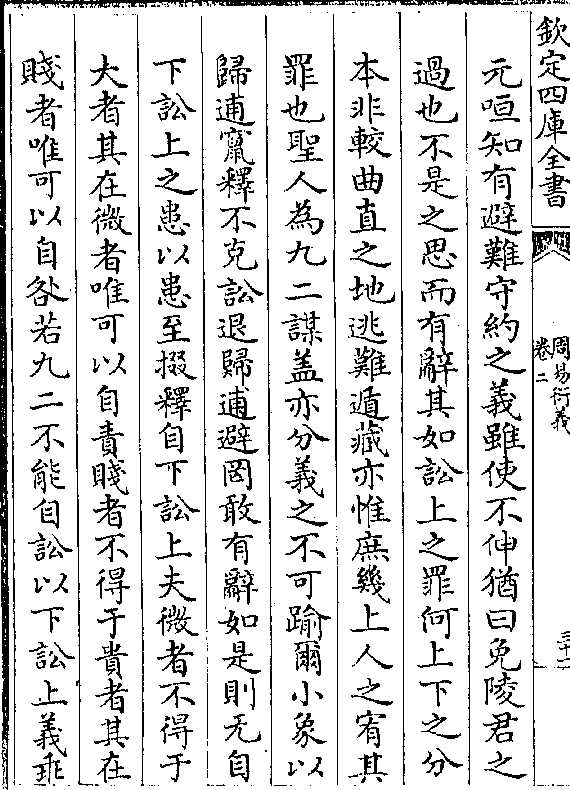 欽定四庫全書
周易衍義
卷二
三十二
元咺知有避難守約之義雖使不伸猶曰免陵君之
過也不是之思而有辭其如訟上之罪何上下之分
本非較曲直之地逃難遁藏亦惟庶幾上人之宥其
罪也聖人為九二謀盖亦分義之不可踰爾小象以
歸逋竄釋不克訟退歸逋避罔敢有辭如是則无自
下訟上之患以患至掇釋自下訟上夫微者不得于
大者其在微者唯可以自責賤者不得于貴者其在
賤者唯可以自咎若九二不能自訟以下訟上義乖